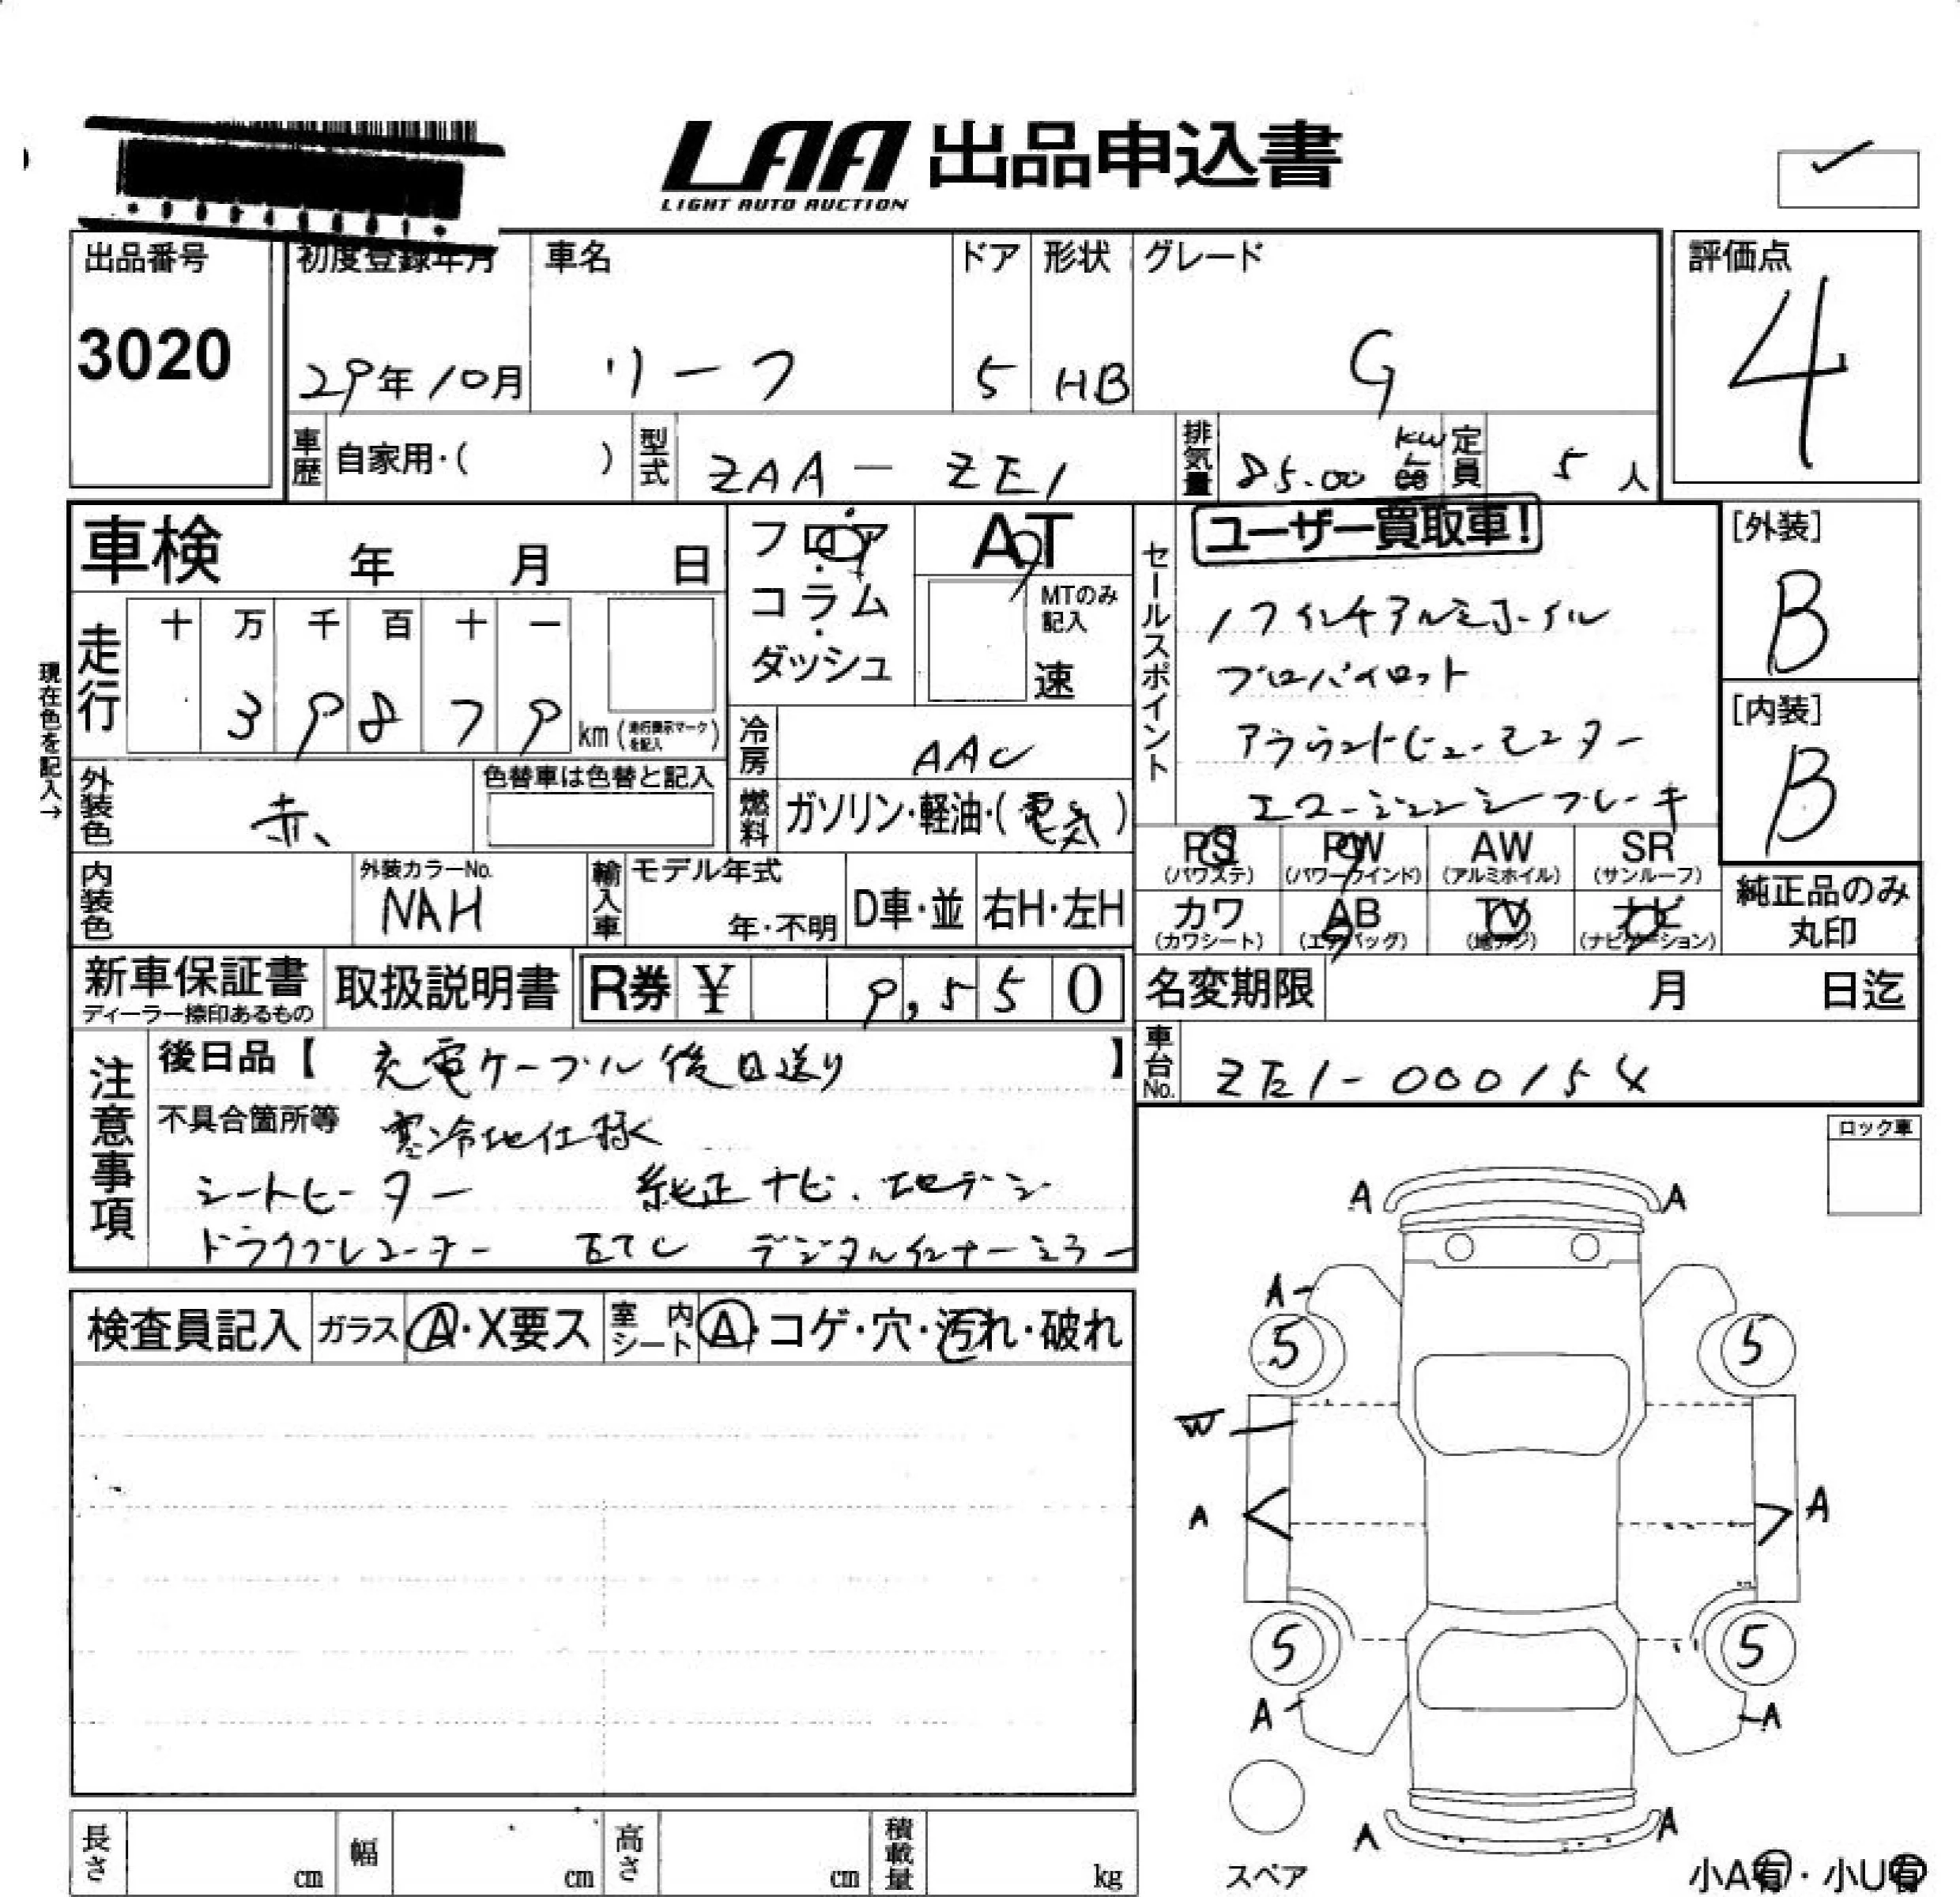 LAA 出品申込書
LIGHT AUTO AUCTION
出品番号
3020
初度登録年月
29年10月
車名
リーフ
ドア
5
形状
HB
グレード
G
評価点
4
車歴 自家用・( )
型式 ZAA-ZE1
排気量 85.00 kw
定員 5人
車検 年 月 日
フロア
コラム
ダッシュ
AT
MTのみ記入
速
セールスポイント
ユーザー買取車!
17インチアルミホイル
プロパイロット
アラウンドビューモニター
エマージェンシーブレーキ
[外装]
B
[内装]
B
現在色を記入→
走行
十 万 千 百 十 一
3 9 8 7 9 km (走行表示マークを記入)
冷房 AAC
外装色 赤
色替車は色替と記入
燃料 ガソリン・軽油・(電気)
PS (パワステ)
PW (パワーウインド)
AW (アルミホイル)
SR (サンルーフ)
カワ (カワシート)
AB (エアバッグ)
TV (地デジ)
ナビ (ナビゲーション)
純正品のみ
丸印
内装色
外装カラーNo.
NAH
輸入車
モデル年式
年・不明
D車・並
右H・左H
新車保証書
ディーラー捺印あるもの
取扱説明書
R券 ¥ 9,550
名変期限 月 日迄
注意事項
後日品【 充電ケーブル後日送り 】
車台No. ZE1-000154
不具合箇所等 寒冷地仕様
シートヒーター 純正ナビ.地デジ
ドライブレコーダー ETC デジタルインナーミラー
ロック車
検査員記入
ガラス A・X要ス
室内シート A・コゲ・穴・汚れ・破れ
A A
A
5 5
W
A A
5 5
A A
A A
スペア
小A有・小U有
長さ cm
幅 cm
高さ cm
積載量 kg